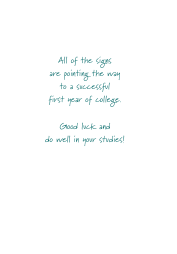 All of the signs
are pointing the way
to a successful
first year of college.
Good luck and
do well in your studies!